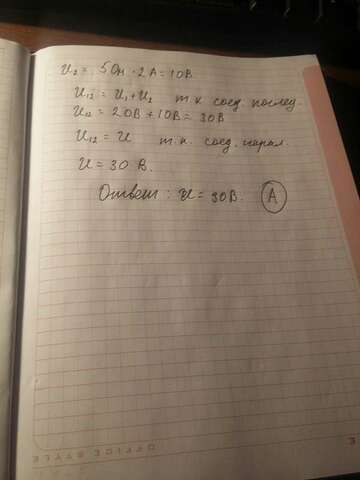 U₂ = 5Ом · 2А = 10В.
U₁₂ = U₁ + U₂ т.к соед. послед.
U₁₂ = 20В + 10В = 30В
U₁₂ = U т.к. соед. парал.
U = 30 В.
Ответ: U = 30В. А
OFFICE STYLE